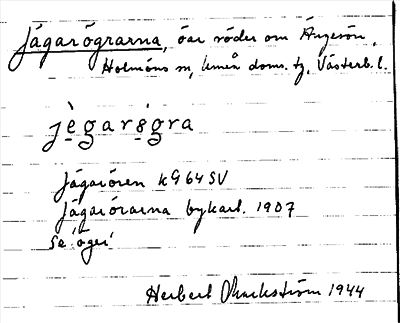 Jägarögrarna, öar söder om Ängesön,
Holmöns sn, Umeå doms. tg, Västerb. l.
jègarögra
Jägarören KG 64 SV
Jägarörarna bykart. 1907
Se öger
Herbert Markström 1944